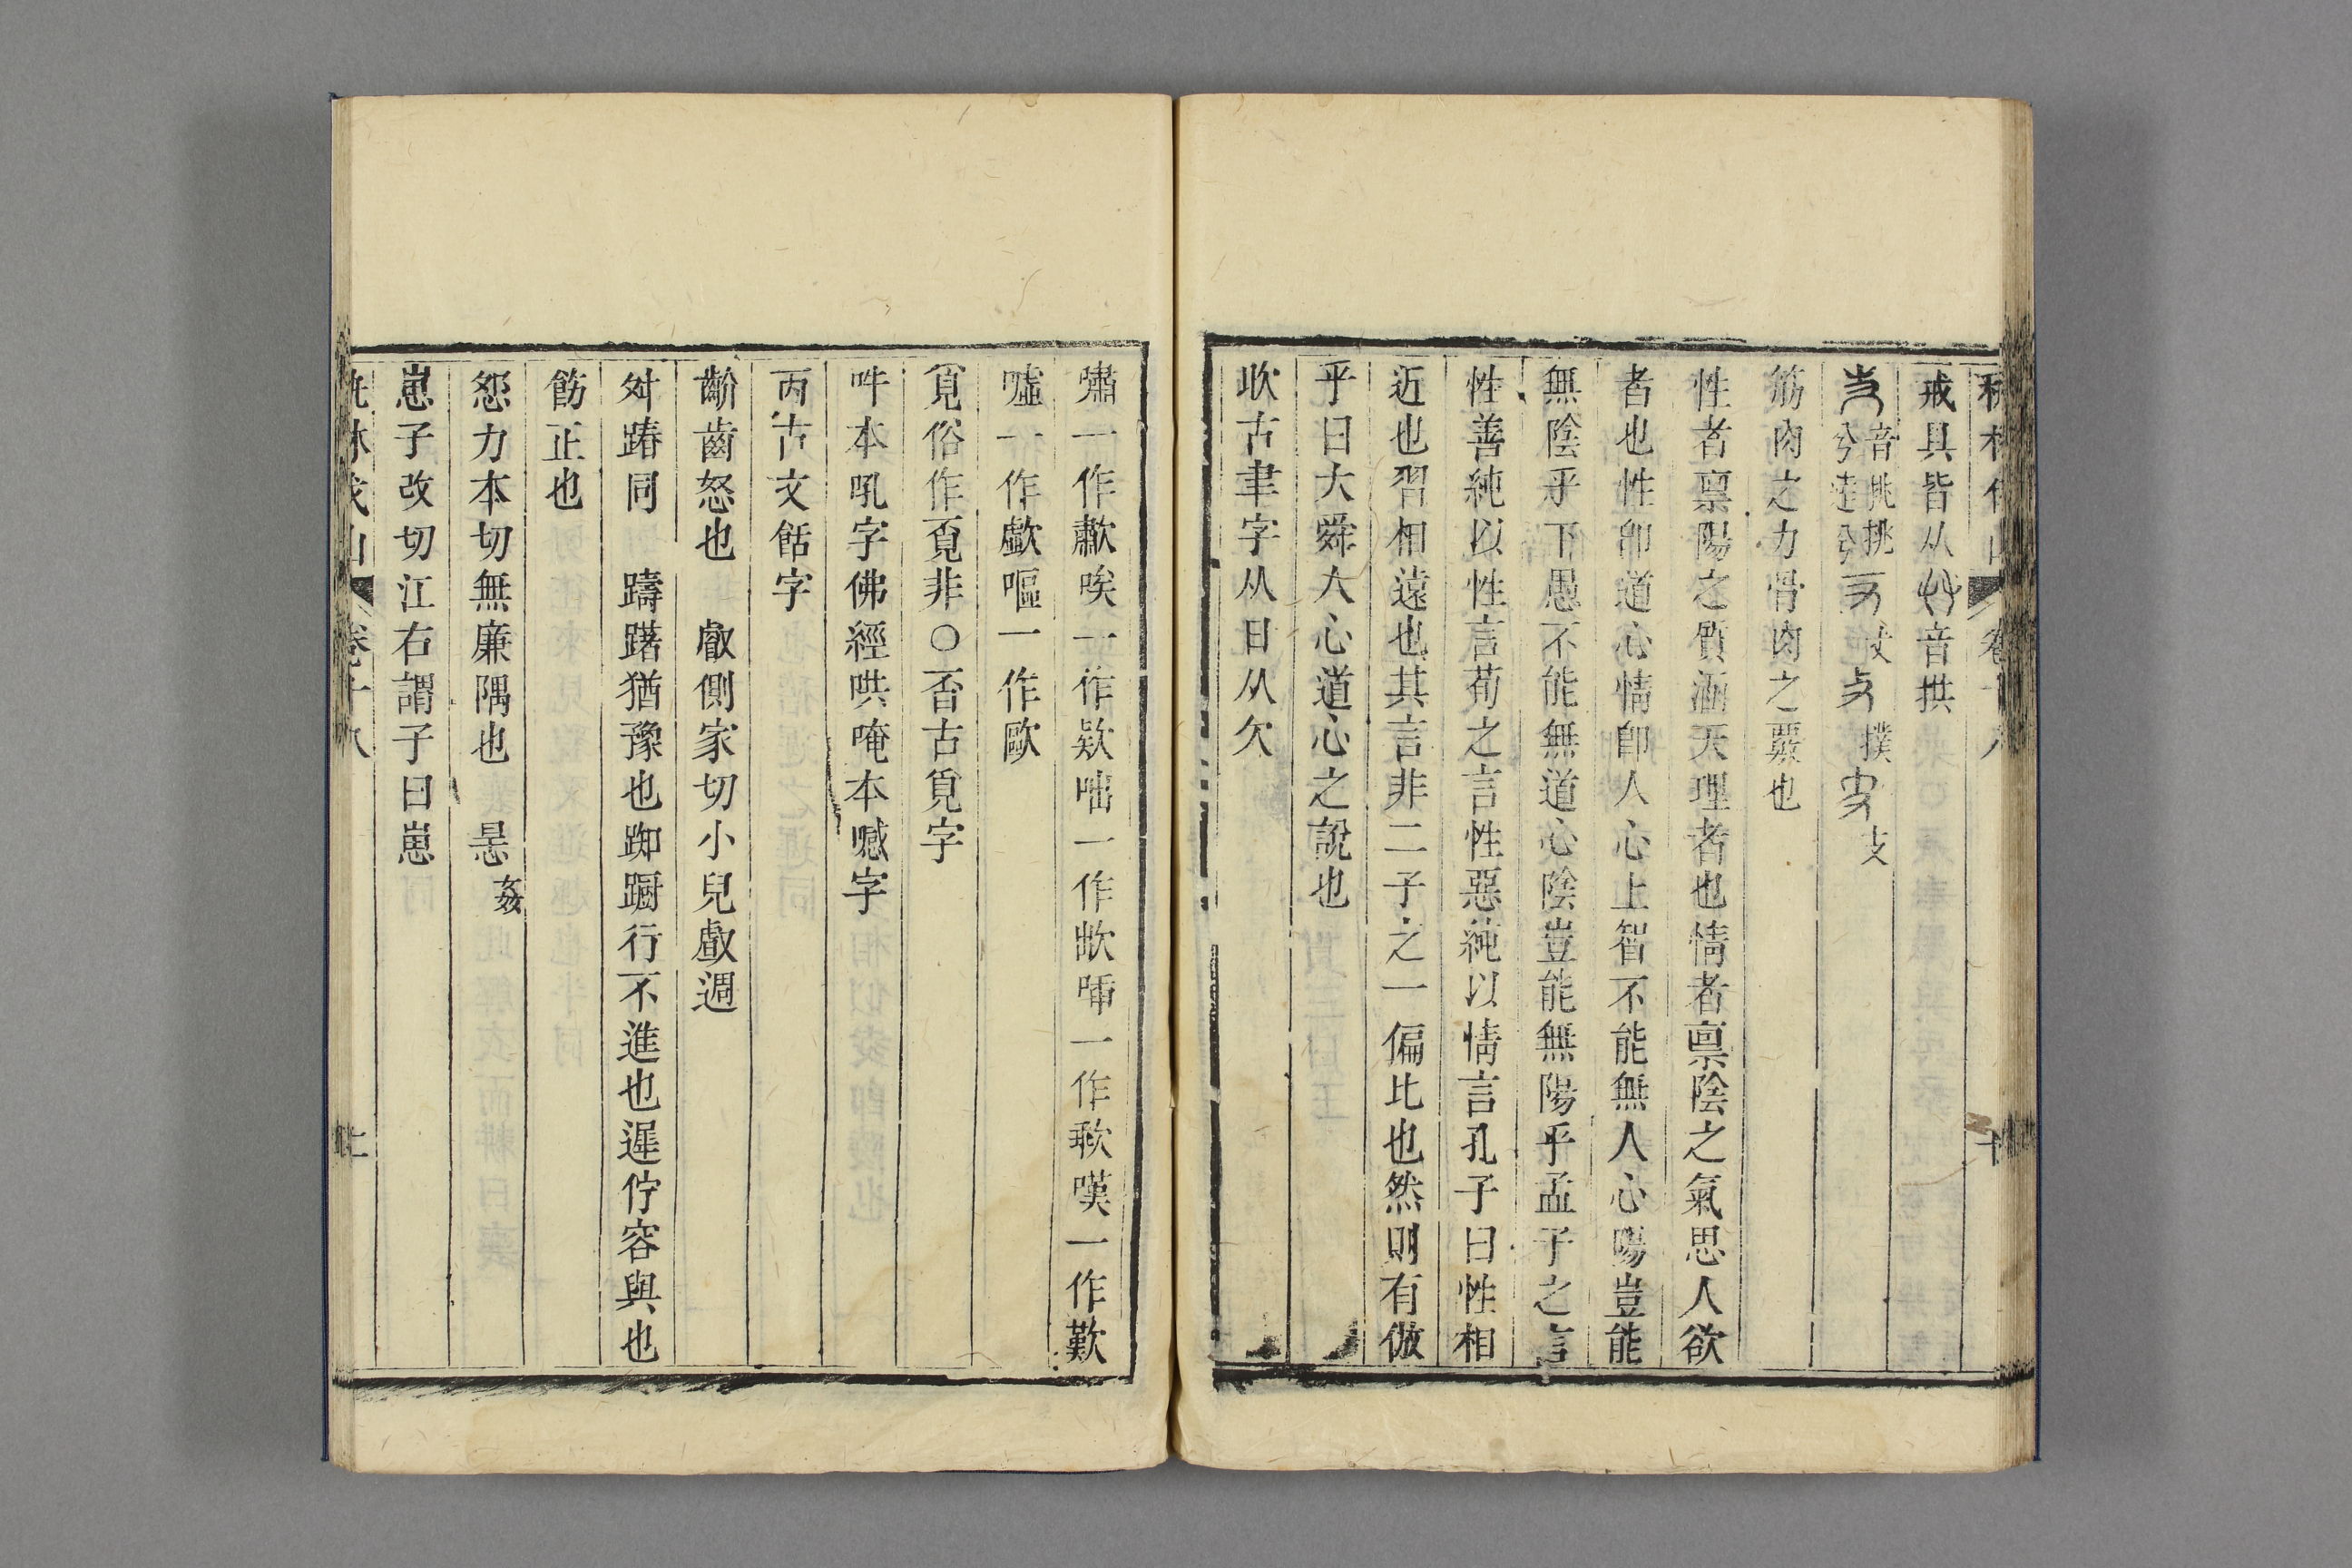 戒具皆从廾音拱
音挑挑 攴 撲 支
筋肉之力骨肉之覈也
性者禀陽之質涵天理者也情者禀陰之氣思人欲
者也性卽道心情卽人心上智不能無人心陽豈能
無陰乎下愚不能無道心陰豈能無陽乎孟子之言
性善純以性言荀之言性惡純以情言孔子曰性相
近也習相遠也其言非二子之一偏比也然則有倣
乎曰大舜人心道心之說也
古聿字从日从欠
嘯一作歗唉一作欸咄一作㰡一作歌嘆一作歎
噓一作歔嘔一作歐
覓俗作覔非○否古覓字
吽本吼字佛經哄唵本嚂字
丙古文餂字
齘齒怒也 戱側家切小兒戱週
舛踳同 躊躇猶豫也踟躕行不進也遲佇容與也
飭正也
恕力本切無廉隅也 㬎姦
崽子改切江右謂子曰崽
卷十八